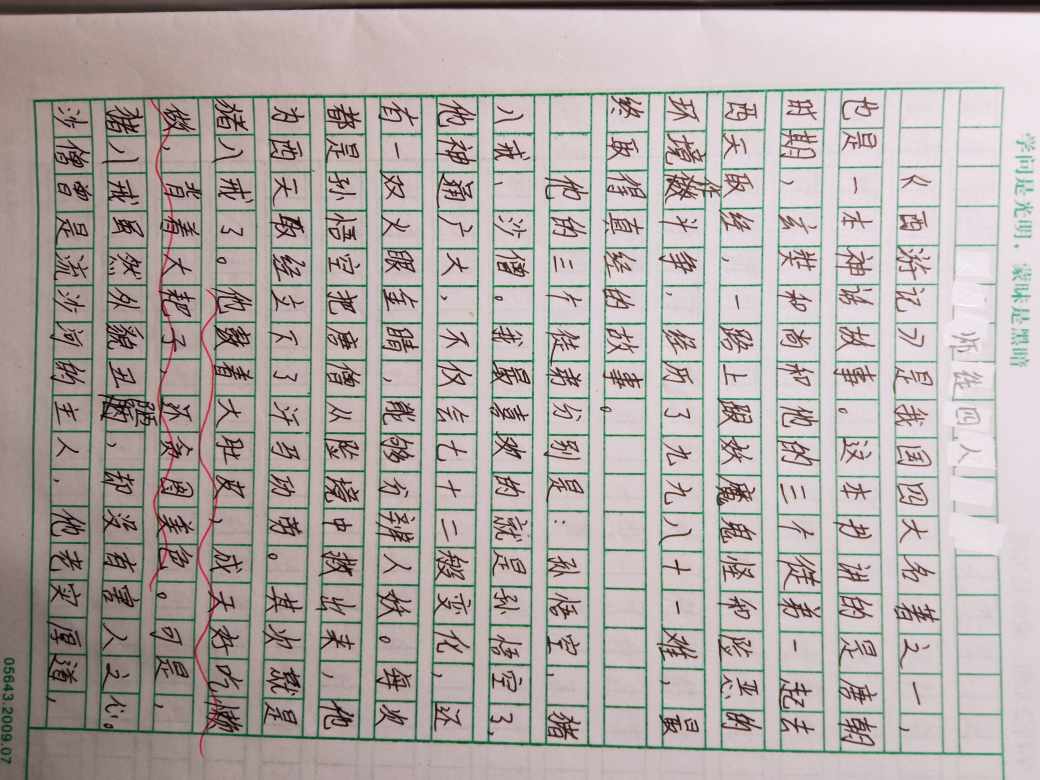 学问是光明，蒙昧是黑暗
师徒四人
《西游记》是我国四大名著之一，
也是一本神话故事。这本书讲的是唐朝
时期，玄奘和尚和他的三个徒弟一起去
西天取经，一路上跟妖魔鬼怪和险恶的
环境做斗争，经历了九九八十一难，最
终取得真经的故事。
他的三个徒弟分别是：孙悟空，猪
八戒、沙僧。我最喜欢的就是孙悟空了，
他神通广大，不仅会七十二般变化，还
有一双火眼金睛，能够分辨人妖。每次
都是孙悟空把唐僧从险境中救出来，他
为西天取经立下了汗马功劳。其次就是
猪八戒了。他挺着大肚皮，成天好吃懒
做，背着大耙子，还贪图美色。可是，
猪八戒虽然外貌丑陋，却没有害人之心。
沙僧曾是流沙河的主人，他老实厚道，
05643.2009.07